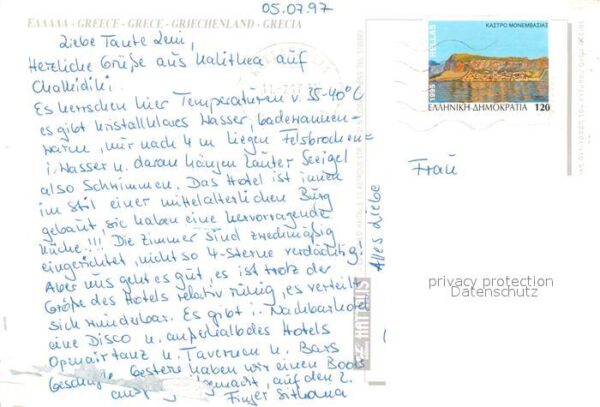 05.07.97
ΕΛΛΑΔΑ - GREECE - GRECE - GRIECHENLAND - GRECIA
Liebe Tante Leni,
Herzliche Grüße aus Kalithea auf
Chalkidiki
Es herrschen hier Temperaturen v. 35-40°C
es gibt kristallklares Wasser, badewannen-
warm, nur nach 4 m liegen Felsbrocken
i. Wasser u. daran hängen lauter Seeigel
also Schwimmen. Das Hotel ist innen
im Stil einer mittelalterlichen Burg
gebaut, sie haben eine hervorragende
Küche!!! Die Zimmer sind zweckmäßig
eingerichtet, nicht so 4-Sterne verdächtig!
Aber uns geht es gut, es ist trotz der
Größe des Hotels relativ ruhig, es verteilt
sich wunderbar. Es gibt i. Nachbarhotel
eine Disco u. außerhalb des Hotels
Openairtanz u. Tavernen u. Bars
Gestern haben wir einen Boots
gemacht, auf den 2.
Finger Sithonia
Alles Liebe
ΚΑΣΤΡΟ ΜΟΝΕΜΒΑΣΙΑΣ
HELLAS
1995
ΕΛΛΗΝΙΚΗ ΔΗΜΟΚΡΑΤΙΑ 120
Frau
privacy protection
Datenschutz
HATTHIS